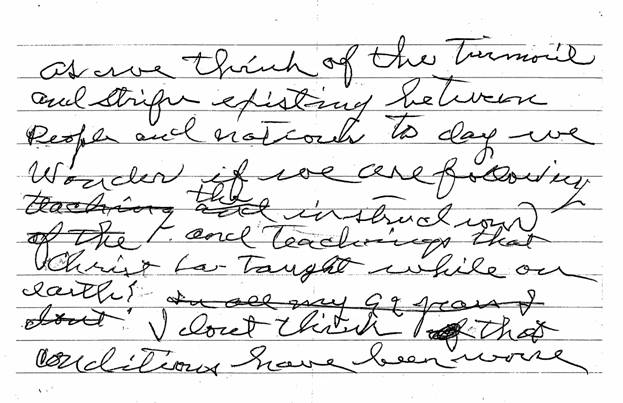 as we think of the Turmoil
and strife existing between
People and nations to day we
wonder if we are following
teaching the and instructions
of the and Teachings that
Christ Taught while on
earth? in all my 99 years I
dont I dont think of that
conditions have been worse